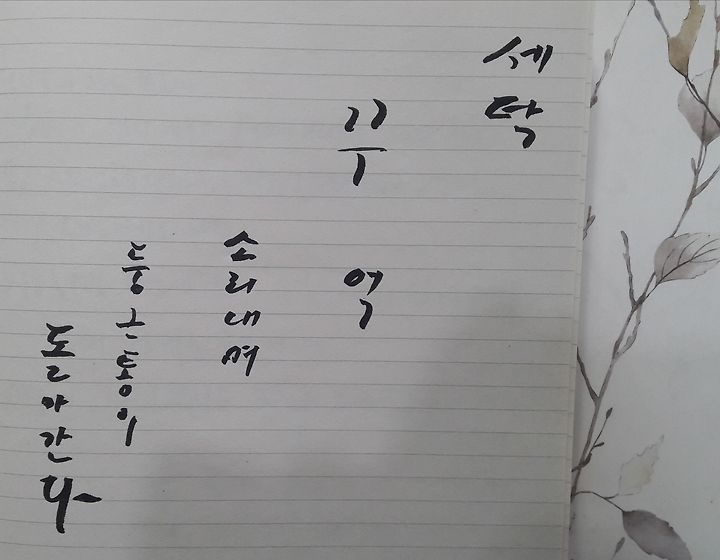 세탁
꾸억
소리내며
둥근통이
돌아간다